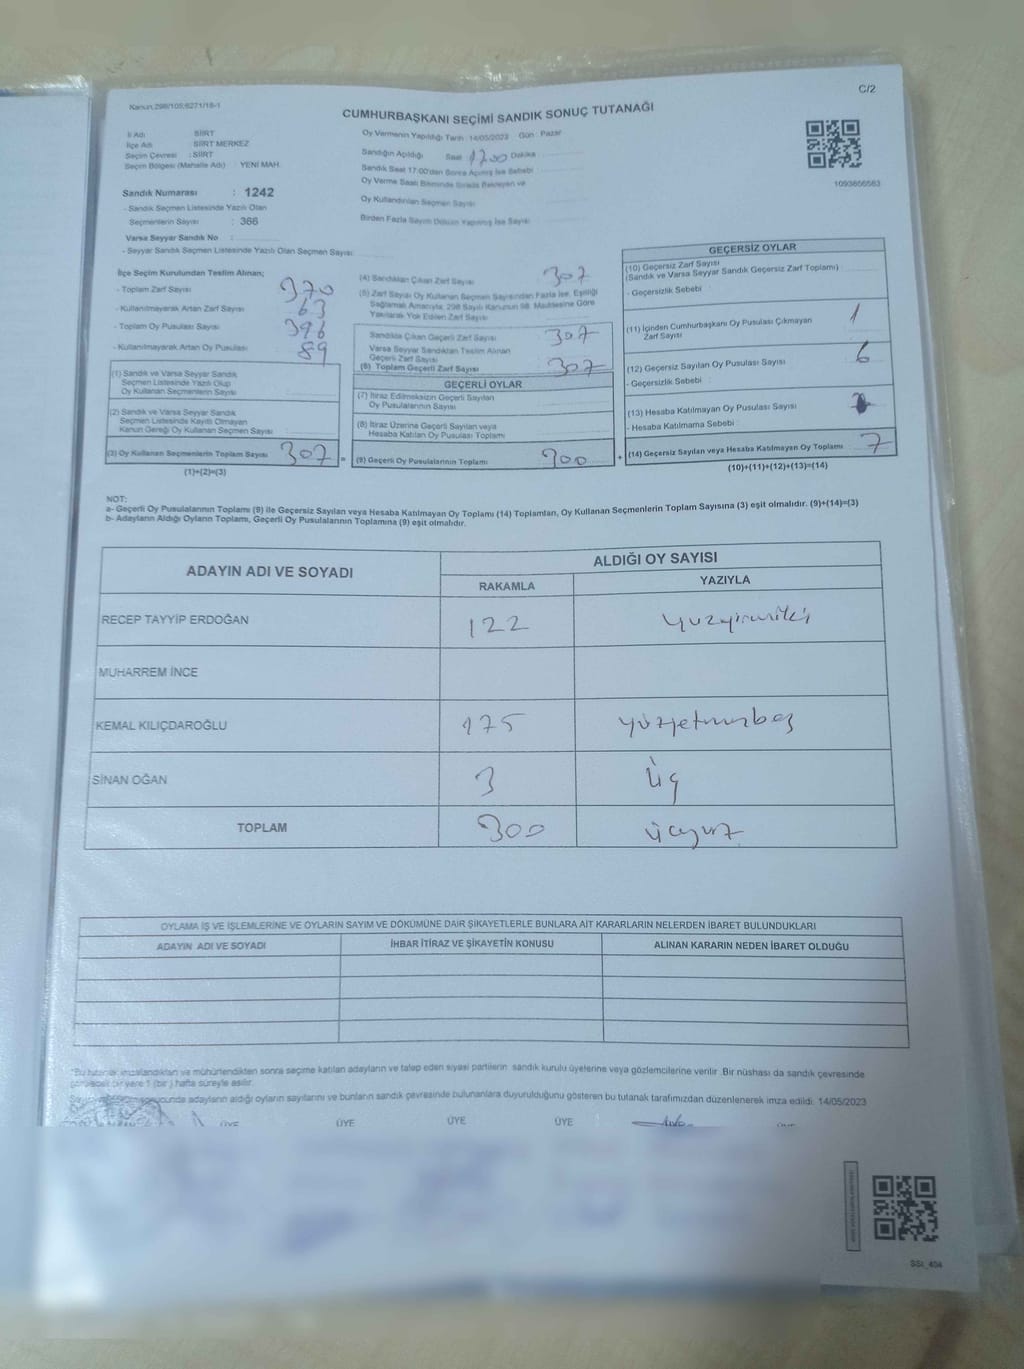 C/2
Kanun:298/105;6271/18-1
CUMHURBAŞKANI SEÇİMİ SANDIK SONUÇ TUTANAĞI
İl Adı : SİİRT
İlçe Adı : SİİRT MERKEZ
Seçim Çevresi : SİİRT
Seçim Bölgesi (Mahalle Adı) : YENİ MAH.
Oy Vermenin Yapıldığı Tarih : 14/05/2023 Gün : Pazar
Sandığın Açıldığı Saat 1700 Dakika
Sandık Saat 17:00'dan Sonra Açılmış İse Sebebi
Oy Verme Saati Bitiminde Sırada Bekleyen ve
Oy Kullandırılan Seçmen Sayısı
Birden Fazla Sayım Döküm Yapılmış İse Sayısı
1093656563
Sandık Numarası : 1242
- Sandık Seçmen Listesinde Yazılı Olan
Seçmenlerin Sayısı : 366
Varsa Seyyar Sandık No :
- Seyyar Sandık Seçmen Listesinde Yazılı Olan Seçmen Sayısı
İlçe Seçim Kurulundan Teslim Alınan;
- Toplam Zarf Sayısı 370
- Kullanılmayarak Artan Zarf Sayısı 63
- Toplam Oy Pusulası Sayısı 396
- Kullanılmayarak Artan Oy Pusulası 89
(1) Sandık ve Varsa Seyyar Sandık
Seçmen Listesinde Yazılı Olup
Oy Kullanan Seçmenlerin Sayısı
(2) Sandık ve Varsa Seyyar Sandık
Seçmen Listesinde Kayıtlı Olmayan
Kanun Gereği Oy Kullanan Seçmen Sayısı
(3) Oy Kullanan Seçmenlerin Toplam Sayısı 307
(1)+(2)=(3)
(4) Sandıktan Çıkan Zarf Sayısı 307
(5) Zarf Sayısı Oy Kullanan Seçmen Sayısından Fazla İse, Eşitliği
Sağlamak Amacıyla; 298 Sayılı Kanunun 98. Maddesine Göre
Yakılarak Yok Edilen Zarf Sayısı
Sandıkta Çıkan Geçerli Zarf Sayısı 307
Varsa Seyyar Sandıktan Teslim Alınan
Geçerli Zarf Sayısı
(6) Toplam Geçerli Zarf Sayısı 307
GEÇERLİ OYLAR
(7) İtiraz Edilmeksizin Geçerli Sayılan
Oy Pusulalarının Sayısı
(8) İtiraz Üzerine Geçerli Sayılan veya
Hesaba Katılan Oy Pusulası Toplamı
= (9) Geçerli Oy Pusulalarının Toplamı 300
GEÇERSİZ OYLAR
(10) Geçersiz Zarf Sayısı
(Sandık ve Varsa Seyyar Sandık Geçersiz Zarf Toplamı)
- Geçersizlik Sebebi :
(11) İçinden Cumhurbaşkanı Oy Pusulası Çıkmayan
Zarf Sayısı 1
(12) Geçersiz Sayılan Oy Pusulası Sayısı 6
- Geçersizlik Sebebi :
(13) Hesaba Katılmayan Oy Pusulası Sayısı
- Hesaba Katılmama Sebebi :
+ (14) Geçersiz Sayılan veya Hesaba Katılmayan Oy Toplamı 7
(10)+(11)+(12)+(13)=(14)
NOT:
a- Geçerli Oy Pusulalarının Toplamı (9) ile Geçersiz Sayılan veya Hesaba Katılmayan Oy Toplamı (14) Toplamları, Oy Kullanan Seçmenlerin Toplam Sayısına (3) eşit olmalıdır. (9)+(14)=(3)
b- Adayların Aldığı Oyların Toplamı, Geçerli Oy Pusulalarının Toplamına (9) eşit olmalıdır.
ADAYIN ADI VE SOYADI ALDIĞI OY SAYISI
RAKAMLA YAZIYLA
RECEP TAYYİP ERDOĞAN 122 yüzyirmiiki
MUHARREM İNCE
KEMAL KILIÇDAROĞLU 175 yüzyetmişbeş
SİNAN OĞAN 3 üç
TOPLAM 300 üçyüz
OYLAMA İŞ VE İŞLEMLERİNE VE OYLARIN SAYIM VE DÖKÜMÜNE DAİR ŞİKAYETLERLE BUNLARA AİT KARARLARIN NELERDEN İBARET BULUNDUKLARI
ADAYIN ADI VE SOYADI İHBAR İTİRAZ VE ŞİKAYETİN KONUSU ALINAN KARARIN NEDEN İBARET OLDUĞU
*Bu tutanak imzalandıktan ve mühürlendikten sonra seçime katılan adayların ve talep eden siyasi partilerin sandık kurulu üyelerine veya gözlemcilerine verilir. Bir nüshası da sandık çevresinde
görülecek bir yere 1 (bir ) hafta süreyle asılır.
sonucunda adayların aldığı oyların sayılarını ve bunların sandık çevresinde bulunanlara duyurulduğunu gösteren bu tutanak tarafımızdan düzenlenerek imza edildi. 14/05/2023
ÜYE ÜYE ÜYE ÜYE
SSt_404